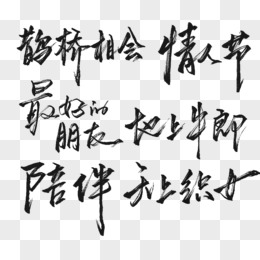 鹊桥相会 情人节
最好的
朋友 地上牛郎
陪伴 天上织女